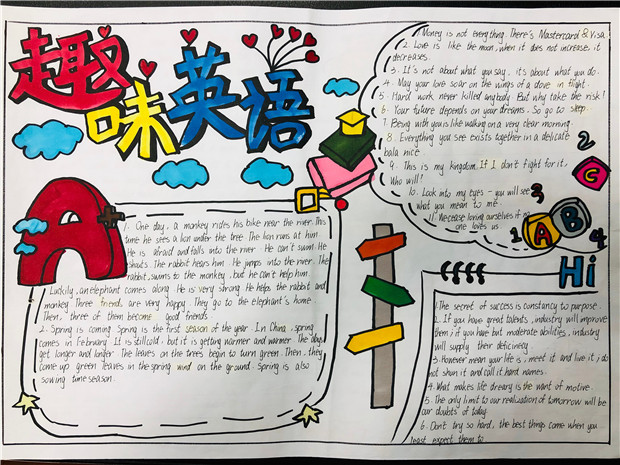 趣味英语
Money is not everything There's Mastercard & Visa
2. Love is like the moon, when it does not increase it
decreases.
3. It's not about what you say, it's about what you do.
4. May your love soar on the wings of a dove in flight
5. Hard work never killed anybody. But why take the risk!
6. Your future depends on your dreams. So go to sleep
7. Being with you is like walking on a very clear morning
8. Everything you see exists together in a delicate
bala nice
9. This is my kingdom. If I don't fight for it,
Who will!
10. Look into my eyes - you will see
what you mean to me
11. We cease loving ourselves if no
one loves us
2
C
3
1
A
B
4
Hi
1. One day, a monkey rides his bike near the river. This
time he sees a lion under the tree The lion runs at him
He is afraid and falls into the river. He can't swim. He
shouts. The rabbit hears him. He jumps into the river. The
rabbit swims to the monkey, but he can't help him.
Luckily, an elephant comes along He is very strong He helps the rabbit and
monkey Three friends are very happy. They go to the elephant's home
Then, three of them become good friends
2. Spring is coming Spring is the first season of the year. In China, spring
comes in February It is still cold, but it is getting warmer and warmer The days
get longer and longer The leaves on the trees begin to turn green. Then, they
come up green leaves in the spring wind on the ground. Spring is also
sowing time season.
1. The secret of success is constancy to purpose
2. If you have great talents, industry will improve
them; if you have but moderate abilities, industry
will supply their deficiney
3. However mean your life is, meet it and live it; do
not shun it and call it hard names.
4. What makes life dreary is the want of motive.
5. The only limit to our realization of tomorrow will be
our doubts of today.
6. Don't try so hard, the best things come when you
least expect them to